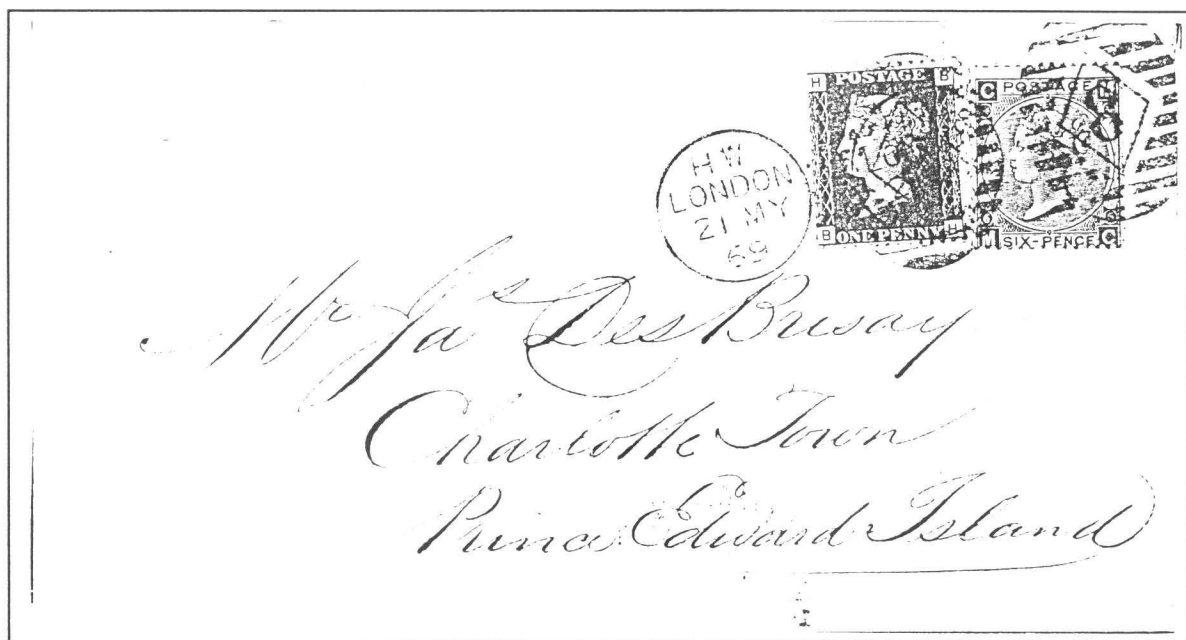 H POSTAGE B
B ONE PENNY H
C POSTAGE
SIX-PENCE C
HW
LONDON
21 MY
69
Mr Jas Des Brisay
Charlotte Town
Prince Edward Island